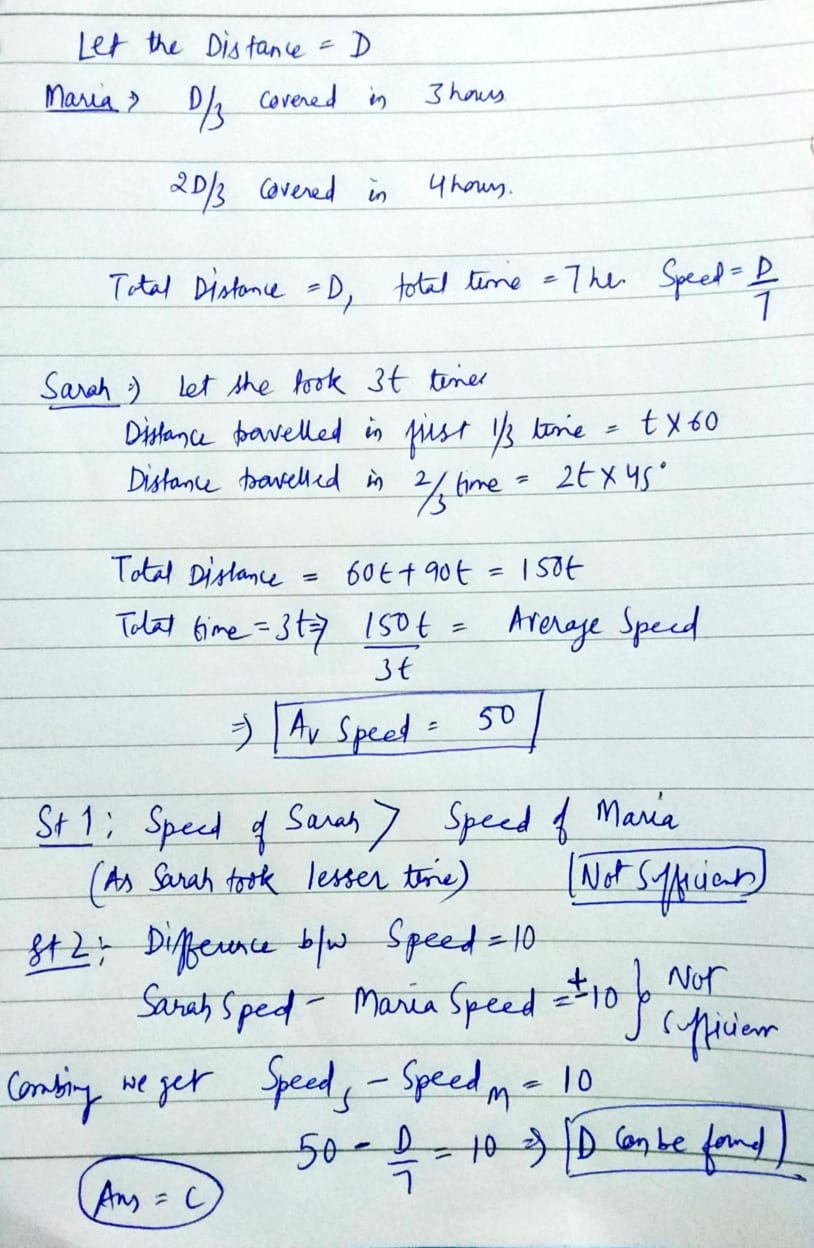 Let the Distance = D
Maria => D/3 covered in 3 hours
2D/3 covered in 4 hours.
Total Distance = D, total time = 7 hr Speed = D/7
Sarah => Let she took 3t times
Distance travelled in first 1/3 time = t X 60
Distance travelled in 2/3 time = 2t X 45
Total Distance = 60t + 90t = 150t
Total time = 3t => 150t/3t = Average Speed
=> Av Speed = 50
St 1: Speed of Sarah > Speed of Maria
(As Sarah took lesser time) Not Sufficient
St 2: Difference b/w Speed = 10
Sarah Sped - Maria Speed = ±10 } Not Sufficient
Combing we get Speed S - Speed M = 10
50 - D/7 = 10 => D can be found
Ans = C